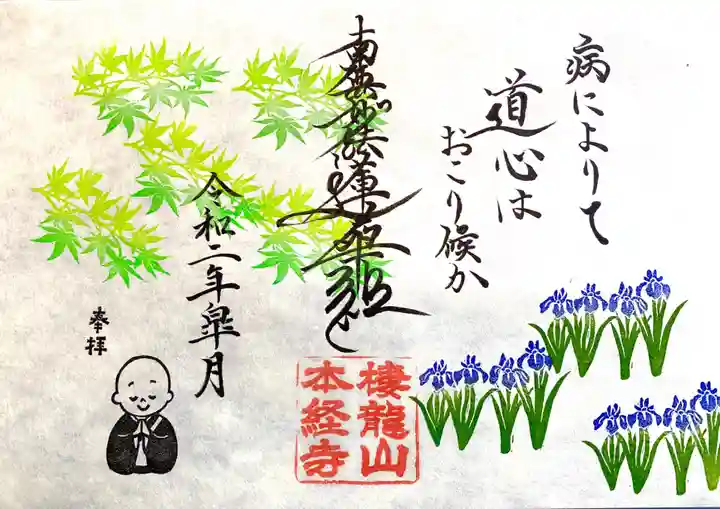 病によりて
道心は
おこり候か
南無妙法蓮華経
令和二年皐月
奉拝
棲龍山
本経寺